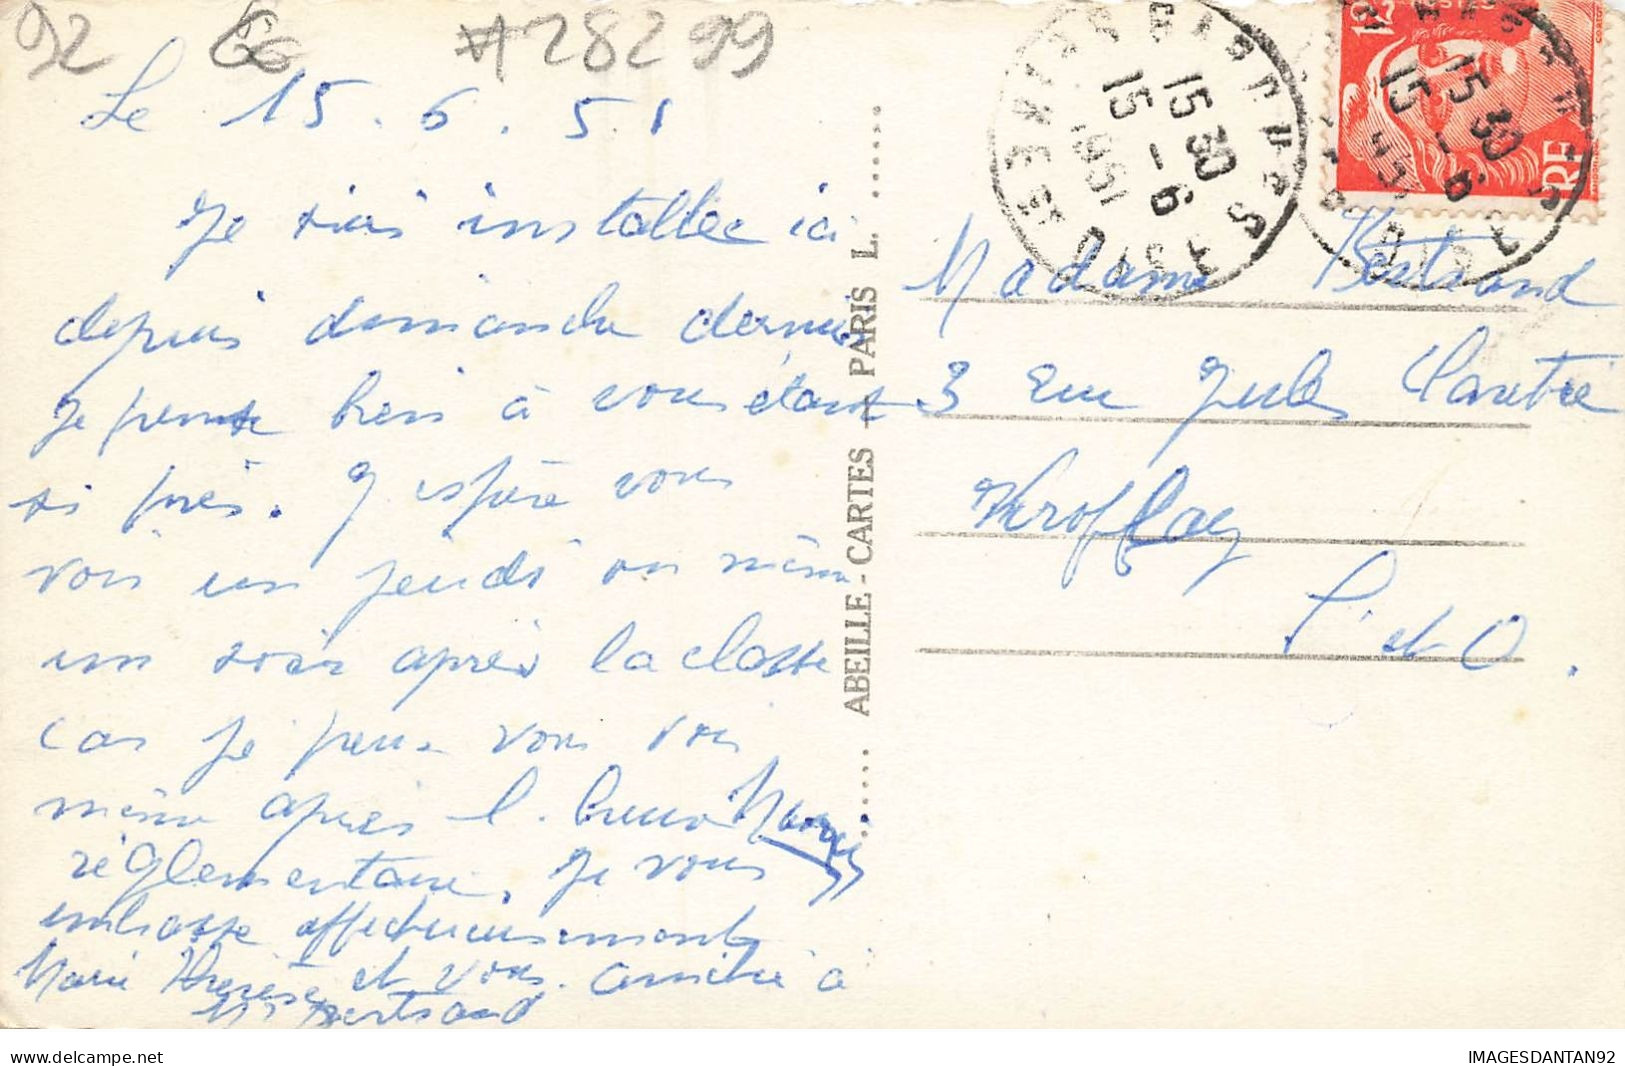 92 #28299
Le 15.6.51
Je suis installée ici
depuis dimanche dernier
Je pense bien à vous étant
si près. J'espère vous
voir un jeudi ou même
un soir après la classe
car je peux vous voir
même après l'heure
réglementaire. Je vous
embrasse affectueusement
Marie Thérèse et vous. amitié à
Mr Bertrand
ABEILLE-CARTES - PARIS
L.
15 30
15 -6
1951
12F
RF
15 30
15 -6
Madame Bertrand
3 rue Jules
Viroflay
S. et O.
delcampe.net
IMAGESDANTAN92